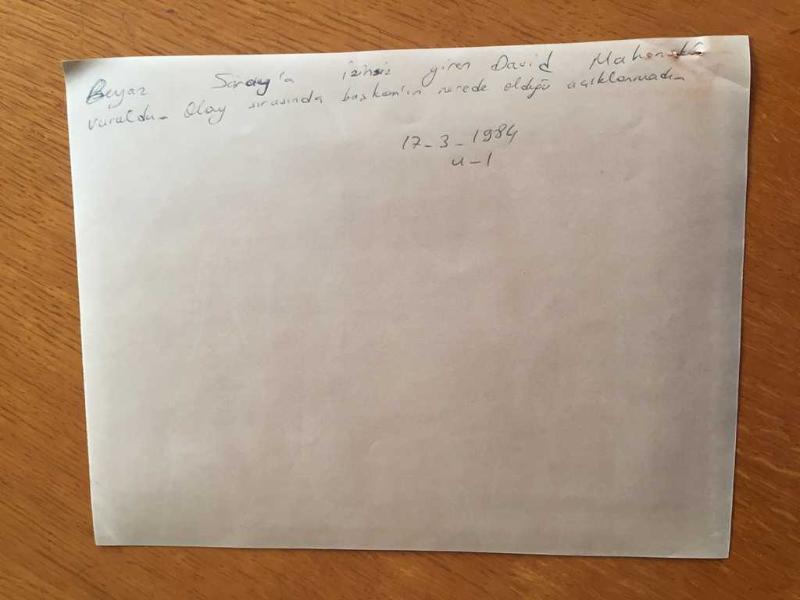 Beyaz Saray'a izinsiz giren David
vuruldu. Olay sırasında başkan'ın nerede olduğu açıklanmadı.
17-3-1984
u-1